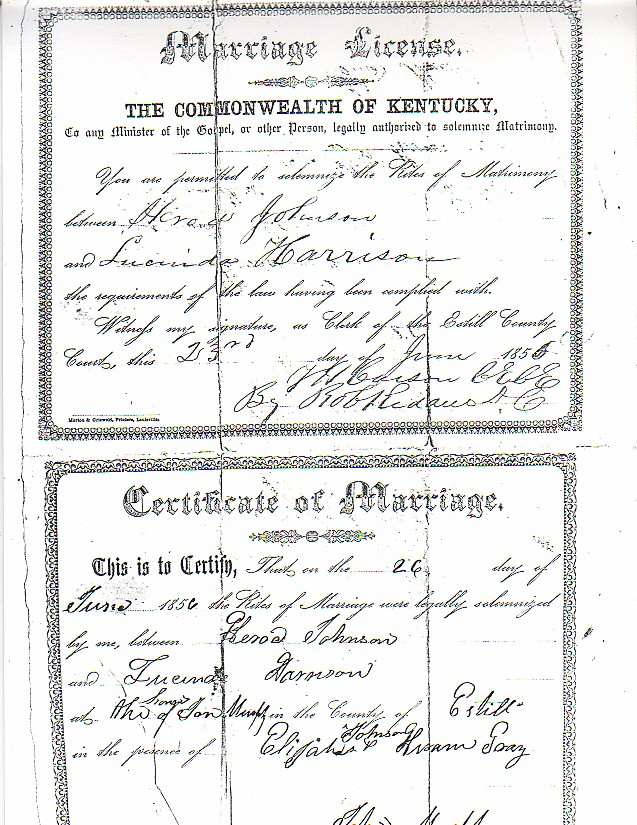 Marriage License.
THE COMMONWEALTH OF KENTUCKY,
To any Minister of the Gospel, or other Person, legally authorized to solemnize Matrimony.
You are permitted to solemnize the Rites of Matrimony
between Herod Johnson
and Lucinda Harrison
the requirements of the law having been complied with.
Witness my signature, as Clerk of the Estill County
Court, this 23rd day of June 1856
By D C
Morton & Griswold, Printers, Louisville.
Certificate of Marriage.
This is to Certify, That on the 26 day of
June 1856 the Rites of Marriage were legally solemnized
by me, between Herod Johnson
and Lucinda Harrison
at the of in the County of Estill
in the presence of Elijah Johnson Hiram